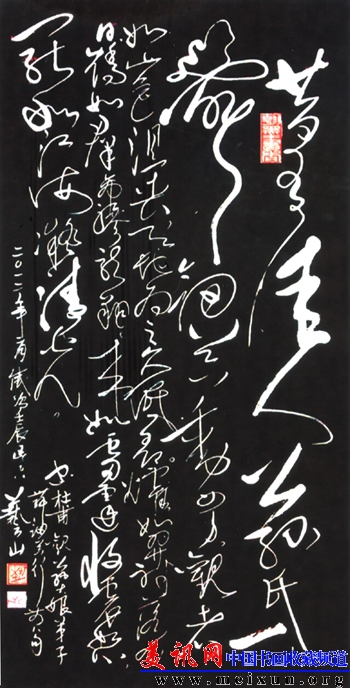 昔有佳人公孫氏一
舞劍器動四方觀者
如山色沮喪天地為之久低昂㸌如羿射九
日落矯如群帝驂龍翔來如雷霆收震怒
罷如江海凝清光
二〇一二年 歲次壬辰
書杜甫觀公孫大娘弟子
舞劍器行
山
美讯网 中国书画收藏频道
www.meixun.org